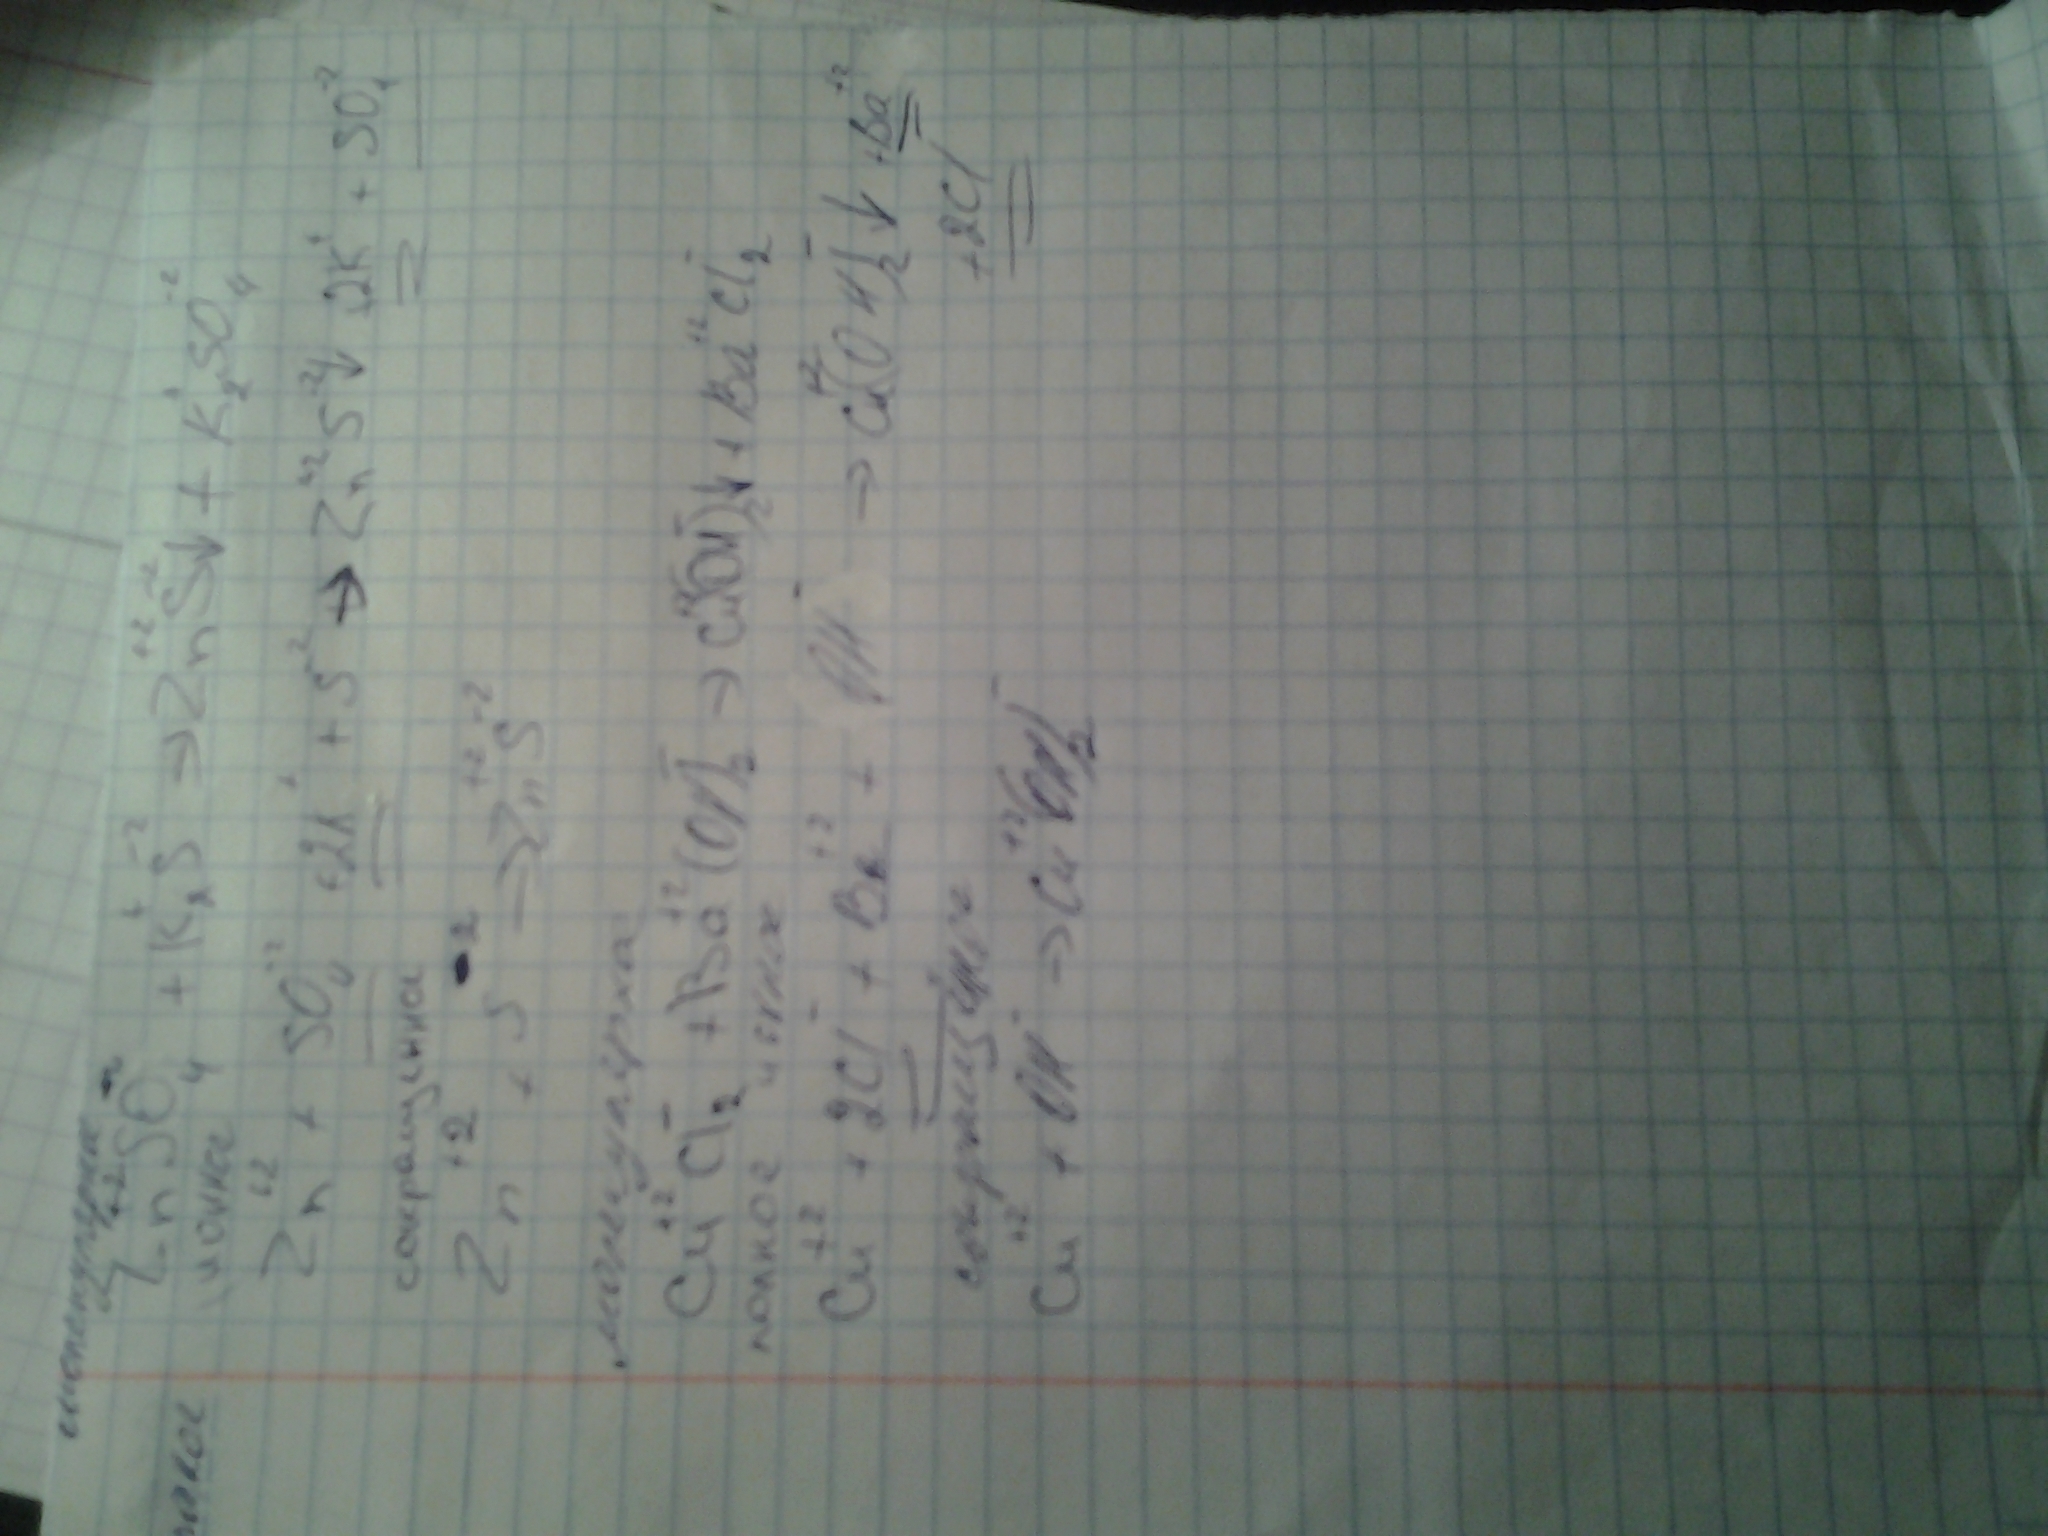 молекулярное
Zn⁺²SO₄⁻² + K₂⁺S⁻² → Zn⁺²S⁻²↓ + K₂⁺SO₄⁻²
полное ионное
Zn⁺² + SO₄⁻² + 2K⁺ + S⁻² → Zn⁺²S⁻²↓ + 2K⁺ + SO₄⁻²
сокращенное
Zn⁺² + S⁻² → Zn⁺²S⁻²
молекулярное
Cu⁺²Cl₂⁻ + Ba⁺²(OH)₂⁻ → Cu⁺²(OH)₂⁻↓ + Ba⁺²Cl₂⁻
полное ионное
Cu⁺² + 2Cl⁻ + Ba⁺² + OH⁻ → Cu⁺²(OH)₂⁻↓ + Ba⁺²
+ 2Cl⁻
Cu⁺² + OH⁻ → Cu⁺²(OH)₂⁻